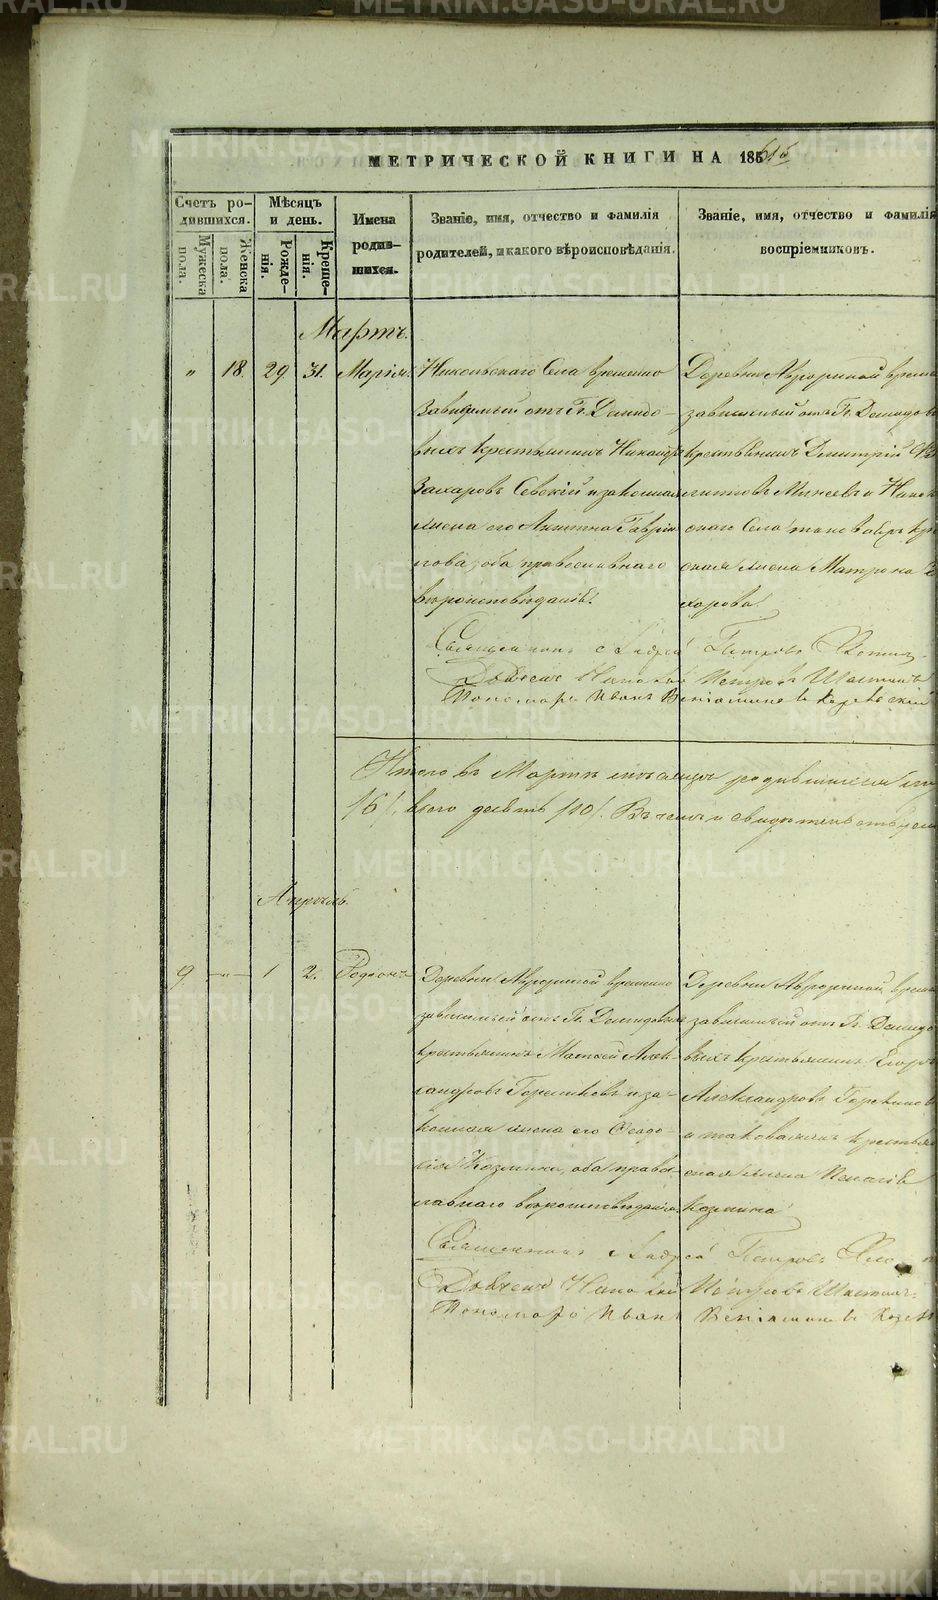 METRIKI.GASO-URAL.RU
МЕТРИЧЕСКОЙ КНИГИ НА 1861й
Счетъ родившихся.
Мужеска пола.
Женска пола.
Мѣсяцъ и день.
Рожденія.
Крещенія.
Имена родившихся.
Званіе, имя, отчество и фамилія родителей, и какого вѣроисповѣданія.
Званіе, имя, отчество и фамилія воспріемниковъ.
Мартъ.
" 18. 29. 31. Марія.
Никольскаго Села временно
зависимый отъ Гг. Демидо-
выхъ крестьянинъ
Захаровъ и законная
жена его Гаврі-
лова, оба православнаго
вѣроисповѣданія.
Деревни Аврориной време
зависимый отъ Гг. Демидов
крестьянинъ Дмитрій
Минеевъ и Никол
скаго Села
жена Матрона
харова
Священникъ Андрей Петровъ
Дьячекъ Николай Петровъ
Пономарь Иванъ Веніаминовъ
Итого въ Мартѣ мѣсяцѣ родившихся
всего десять /10/. Въ чемъ и свидѣтельствуемъ
Апрѣль.
9. " 1 2. Родіонъ
Деревни Аврориной временно
зависимый отъ Гг. Демидовыхъ
крестьянинъ Матвей Алек-
сандровъ и за-
конная жена его Ѳеодо-
сія Козмина, оба право-
славнаго вѣроисповѣданія.
Деревни Аврориной време
зависимый отъ Гг. Демидо
выхъ крестьянинъ Егоръ
Александровъ
и таковая крестьян
ская жена
Козмина
Священникъ Андрей Петровъ
Дьячекъ Николай Петровъ
Пономарь Иванъ Веніаминовъ